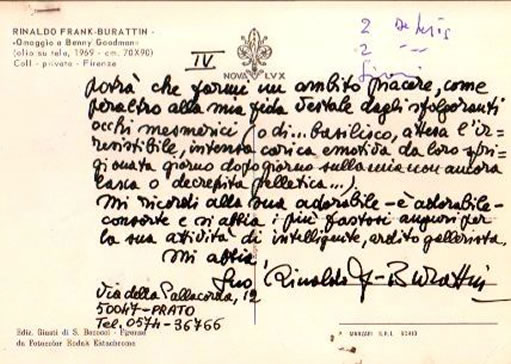 RINALDO FRANK-BURATTIN -
«Omaggio a Benny Goodman»
(olio su tela, 1969 - cm. 70X90)
Coll - privata - Firenze
IV
NOVA LVX
2
2
potrà che farmi un ambito piacere, come
peraltro alla mia fida vestale dagli sfolgoranti
occhi mesmerici (o di... basilisco, attesa l'ir-
resistibile, intensa carica emotiva da loro spri-
gionata giorno dopo giorno sulla mia non ancora
lasca o decrepita pelletica...).
Mi ricordi alla sua adorabile - è adorabile -
consorte e si abbia i più fastosi auguri per
la sua attività di intelligente, ardito gallerista.
Mi abbia,
Suo Rinaldo F-Burattin
Via della Pallacorda, 12
50047-PRATO
Tel. 0574-36766
Ediz. Giusti di S. Becocci - Firenze
da Fotocolor Kodak Ektachrome